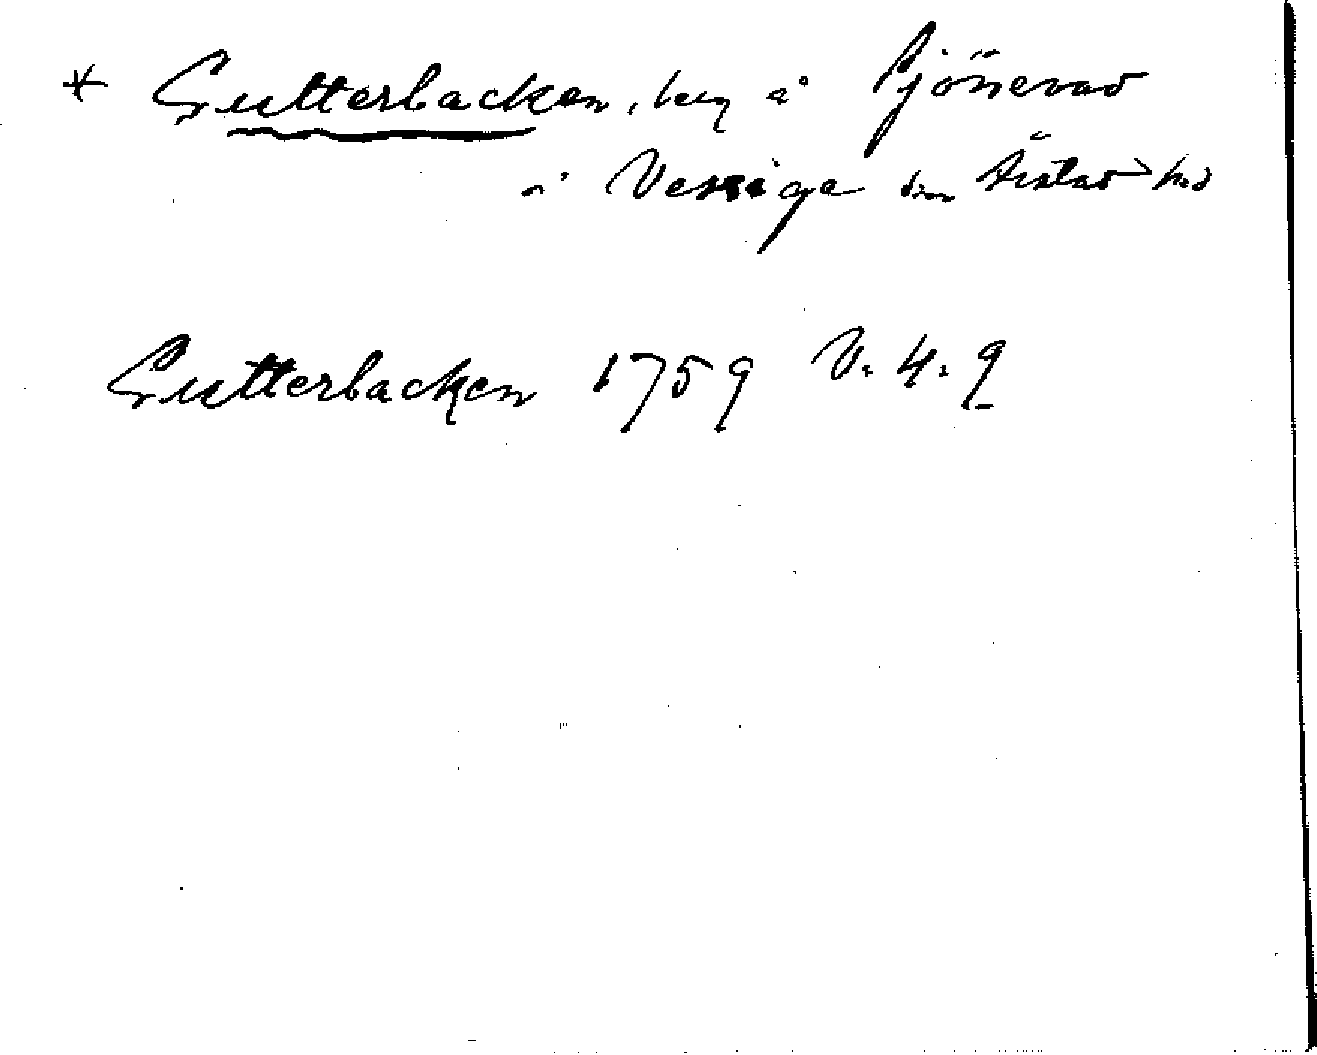 * Sutterbacken, beg å Sjönevad
i Vessige sn Årstad hd
Sutterbacken 1759 V. 4. 9